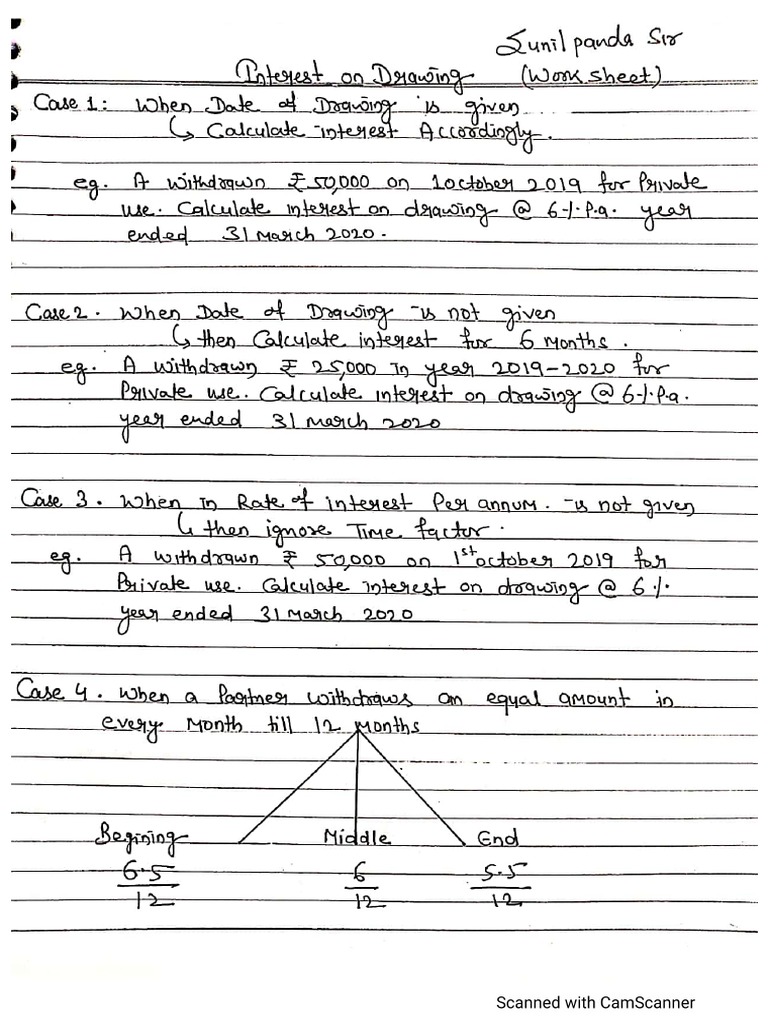 Sunil panda Sir
Interest on Drawing (Work Sheet)
Case 1: When Date of Drawing is given
↳ Calculate interest Accordingly.
eg. A withdrawn ₹ 50,000 on 1 october 2019 for Private
use. Calculate interest on drawing @ 6% P.a. year
ended 31 March 2020.
Case 2. When Date of Drawing is not given
↳ then Calculate interest for 6 Months.
eg. A withdrawn ₹ 25,000 In year 2019-2020 for
Private use. Calculate interest on drawing @ 6% P.a.
year ended 31 March 2020
Case 3. When In Rate of interest Per annum. is not given
↳ then ignose Time factor.
eg. A withdrawn ₹ 50,000 on 1st october 2019 for
Private use. Calculate interest on drawing @ 6%
year ended 31 March 2020
Case 4. When a Partner withdraws an equal amount in
every Month till 12 Months
Begining Middle End
6.5/12 6/12 5.5/12
Scanned with CamScanner